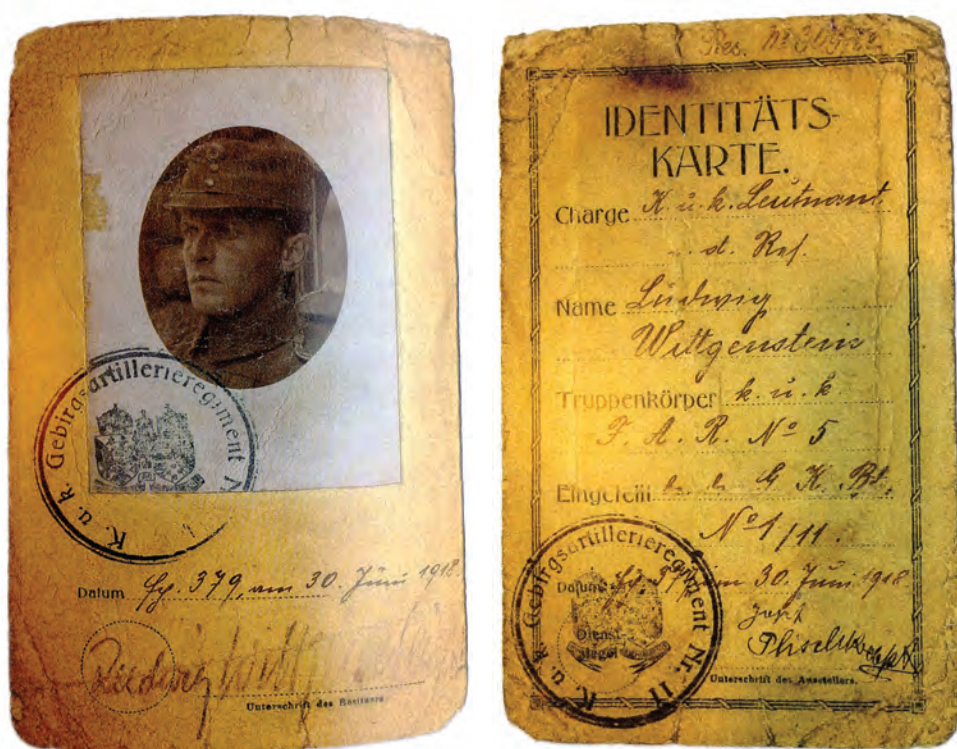 K. u. k. Gebirgsartillerieregiment Nr.
Datum Fp. 379, am 30. Juni 1918
Ludwig
Unterschrift des Besitzers.
Res. Nº
IDENTITÄTS-
KARTE.
Charge K. u. k. Leutnant
d. Res.
Name Ludwig
Wittgenstein
Truppenkörper k. u. k.
F. A. R. Nº 5
Eingeteilt G. K. Bt.
Nº 1/11.
Datum Fp. 379, am 30. Juni 1918
Dienst-
siegel
K. u. k. Gebirgsartillerieregiment Nr. 11
Unterschrift des Ausstellers.